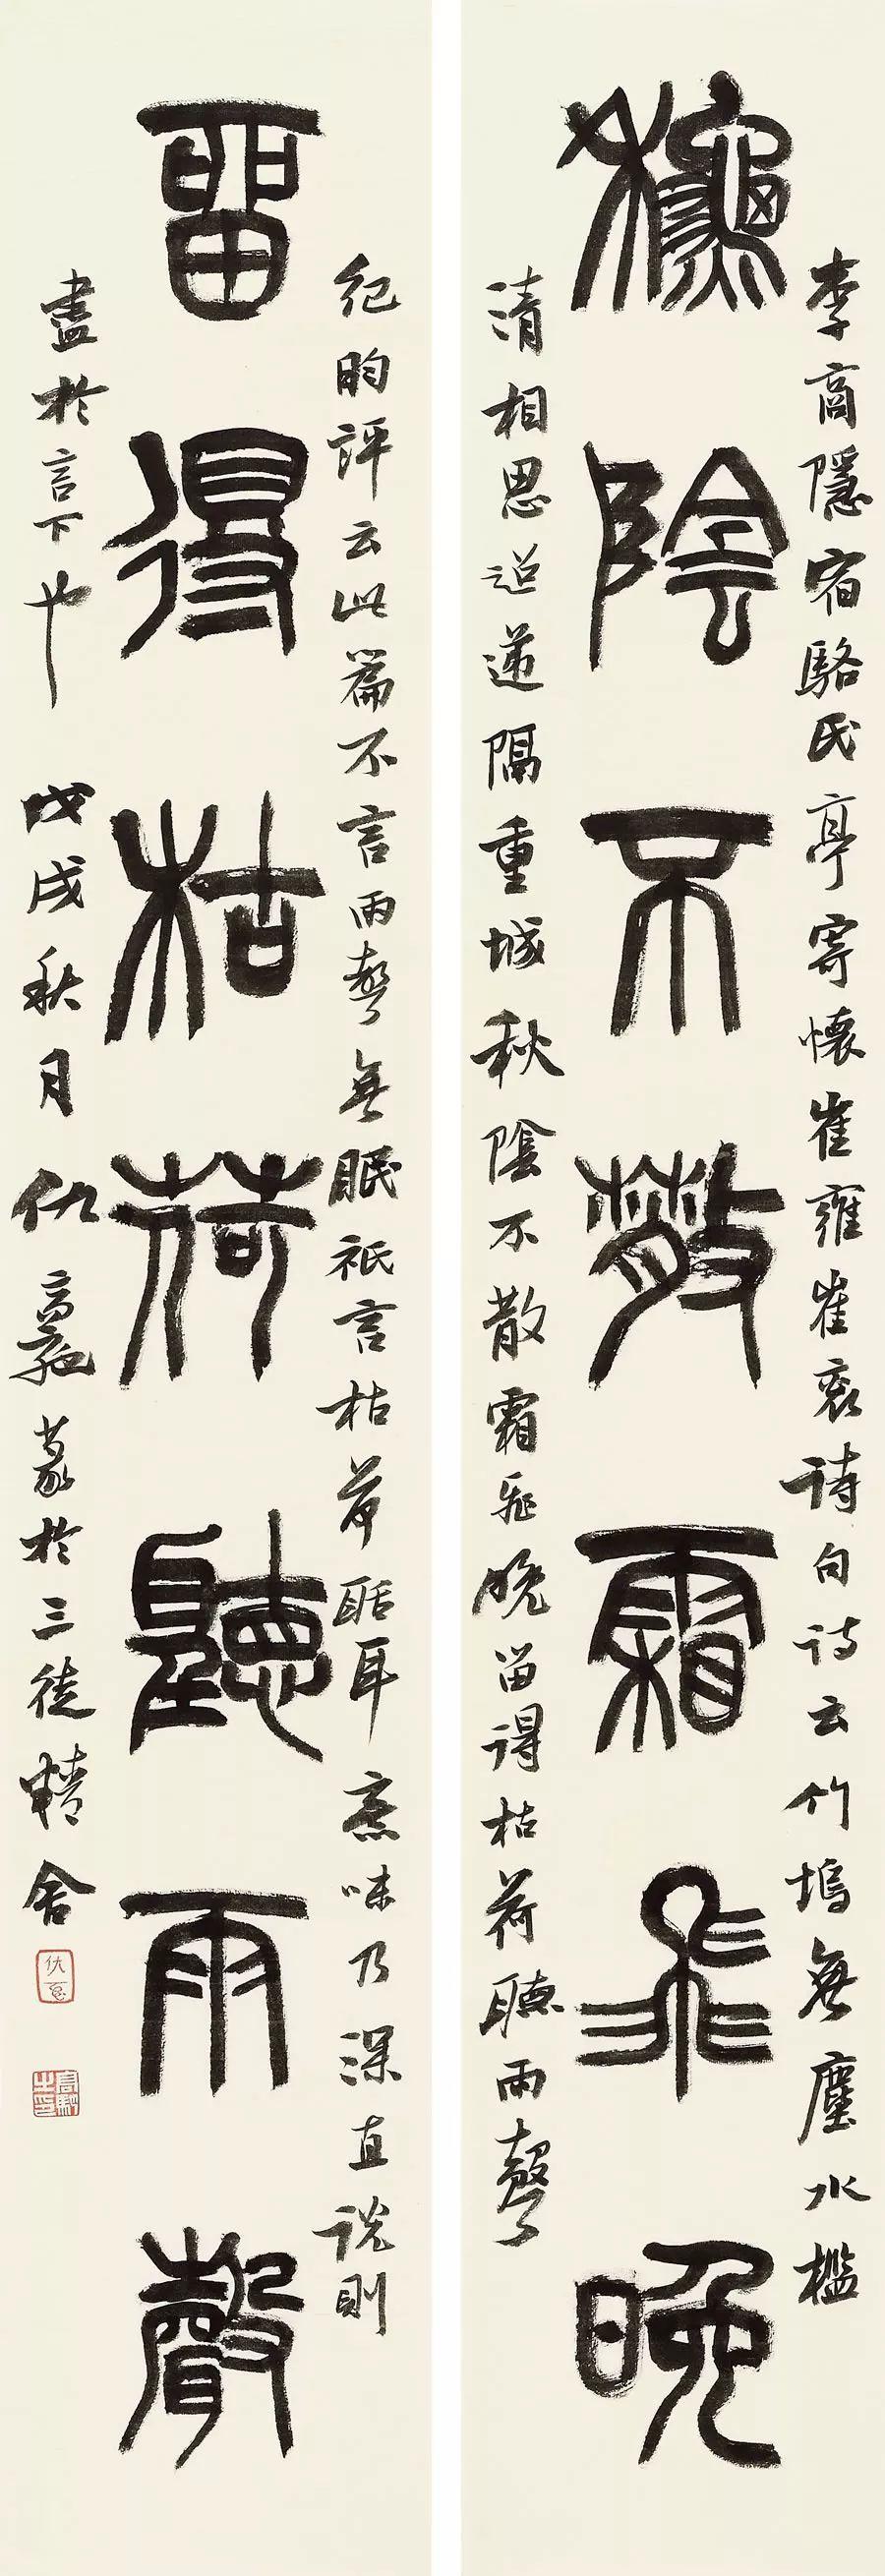 李商隱宿駱氏亭寄懷崔雍崔袞詩句詩云竹塢無塵水檻
秋陰不散霜飛晚
清相思迢遞隔重城秋陰不散霜飛晚留得枯荷聽雨聲
紀昀評云此篇不言雨聲無眠祇言枯荷聒耳意味乃深直說則
留得枯荷聽雨聲
盡於言下也
戊戌秋月仇高馳篆於三徒精舍
仇高
高馳之印